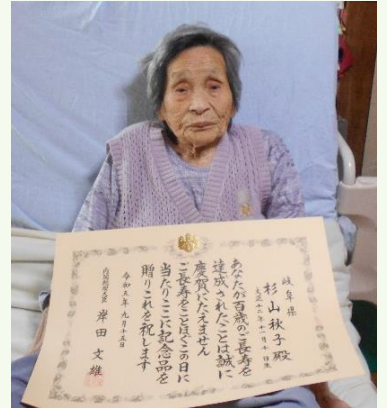 岐阜県
杉山秋子殿
大正十二年十一月七日生
あなたが百歳のご長寿を
達成されたことは誠に
慶賀にたえません
ご長寿をことほぐこの日に
当たりここに記念品を
贈りこれを祝します
令和五年九月十五日
内閣総理大臣 岸田文雄